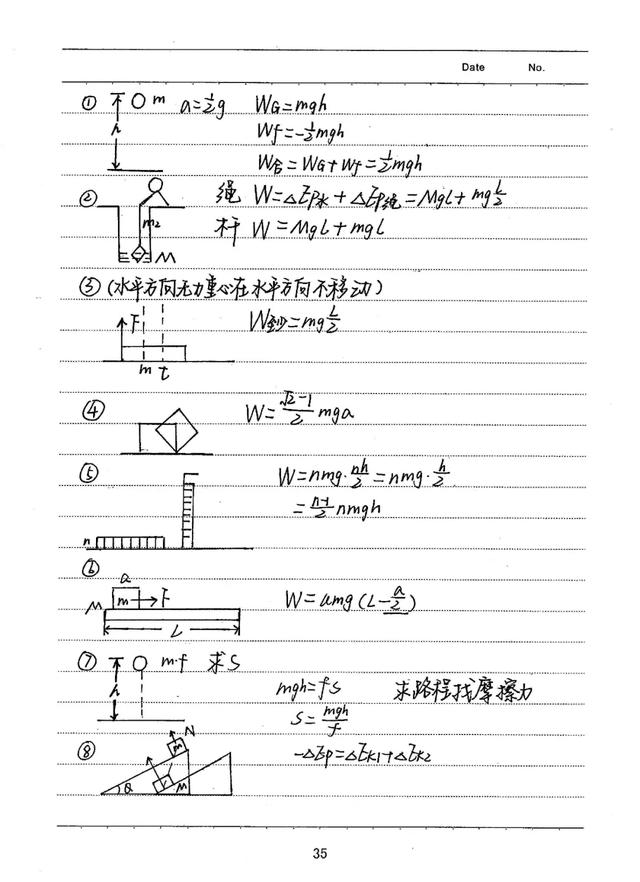 Date No.
① h m a=½g W_G=mgh
W_f=-½mgh
W合=W_G+W_f=½mgh
② m₂ M 绳 W=ΔEp水+ΔEp绳=Mgl+mg l/2
杆 W=Mgl+mgl
③ (水平方向无力重心在水平方向不移动)
F m t W至少=mg L/2
④ W=(√2-1)/2 mga
⑤ n W=nmg·nh/2=nmg·h/2
=(n-1)/2 nmgh
⑥
a m F M L W=umg(L-a/2)
⑦ h m·f 求S
mgh=fs 求路程找摩擦力
S=mgh/f
⑧ N m v M θ -ΔEp=ΔEk1+ΔEk2
35